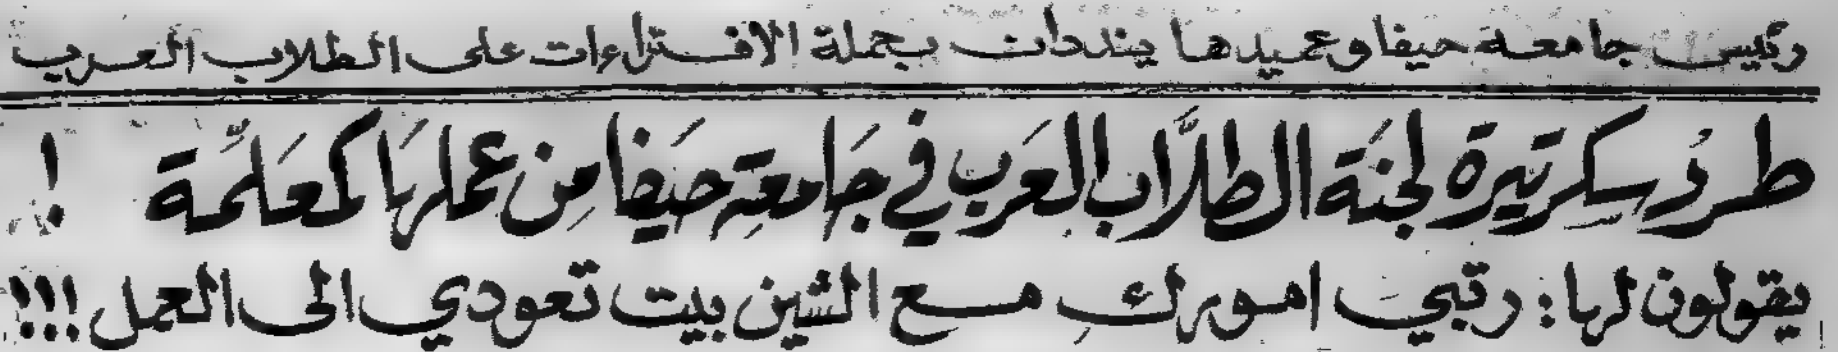 رئيس جامعة حيفا وعميدها ينددان بحملة الافتراءات على الطلاب العرب
طرد سكرتيرة لجنة الطلّاب العَرب في جَامعَةِ حَيفا مِن عملهَا كمعَلّمة !
يقولون لها: رتبي امورك مع الشين بيت تعودي الى العمل !!!